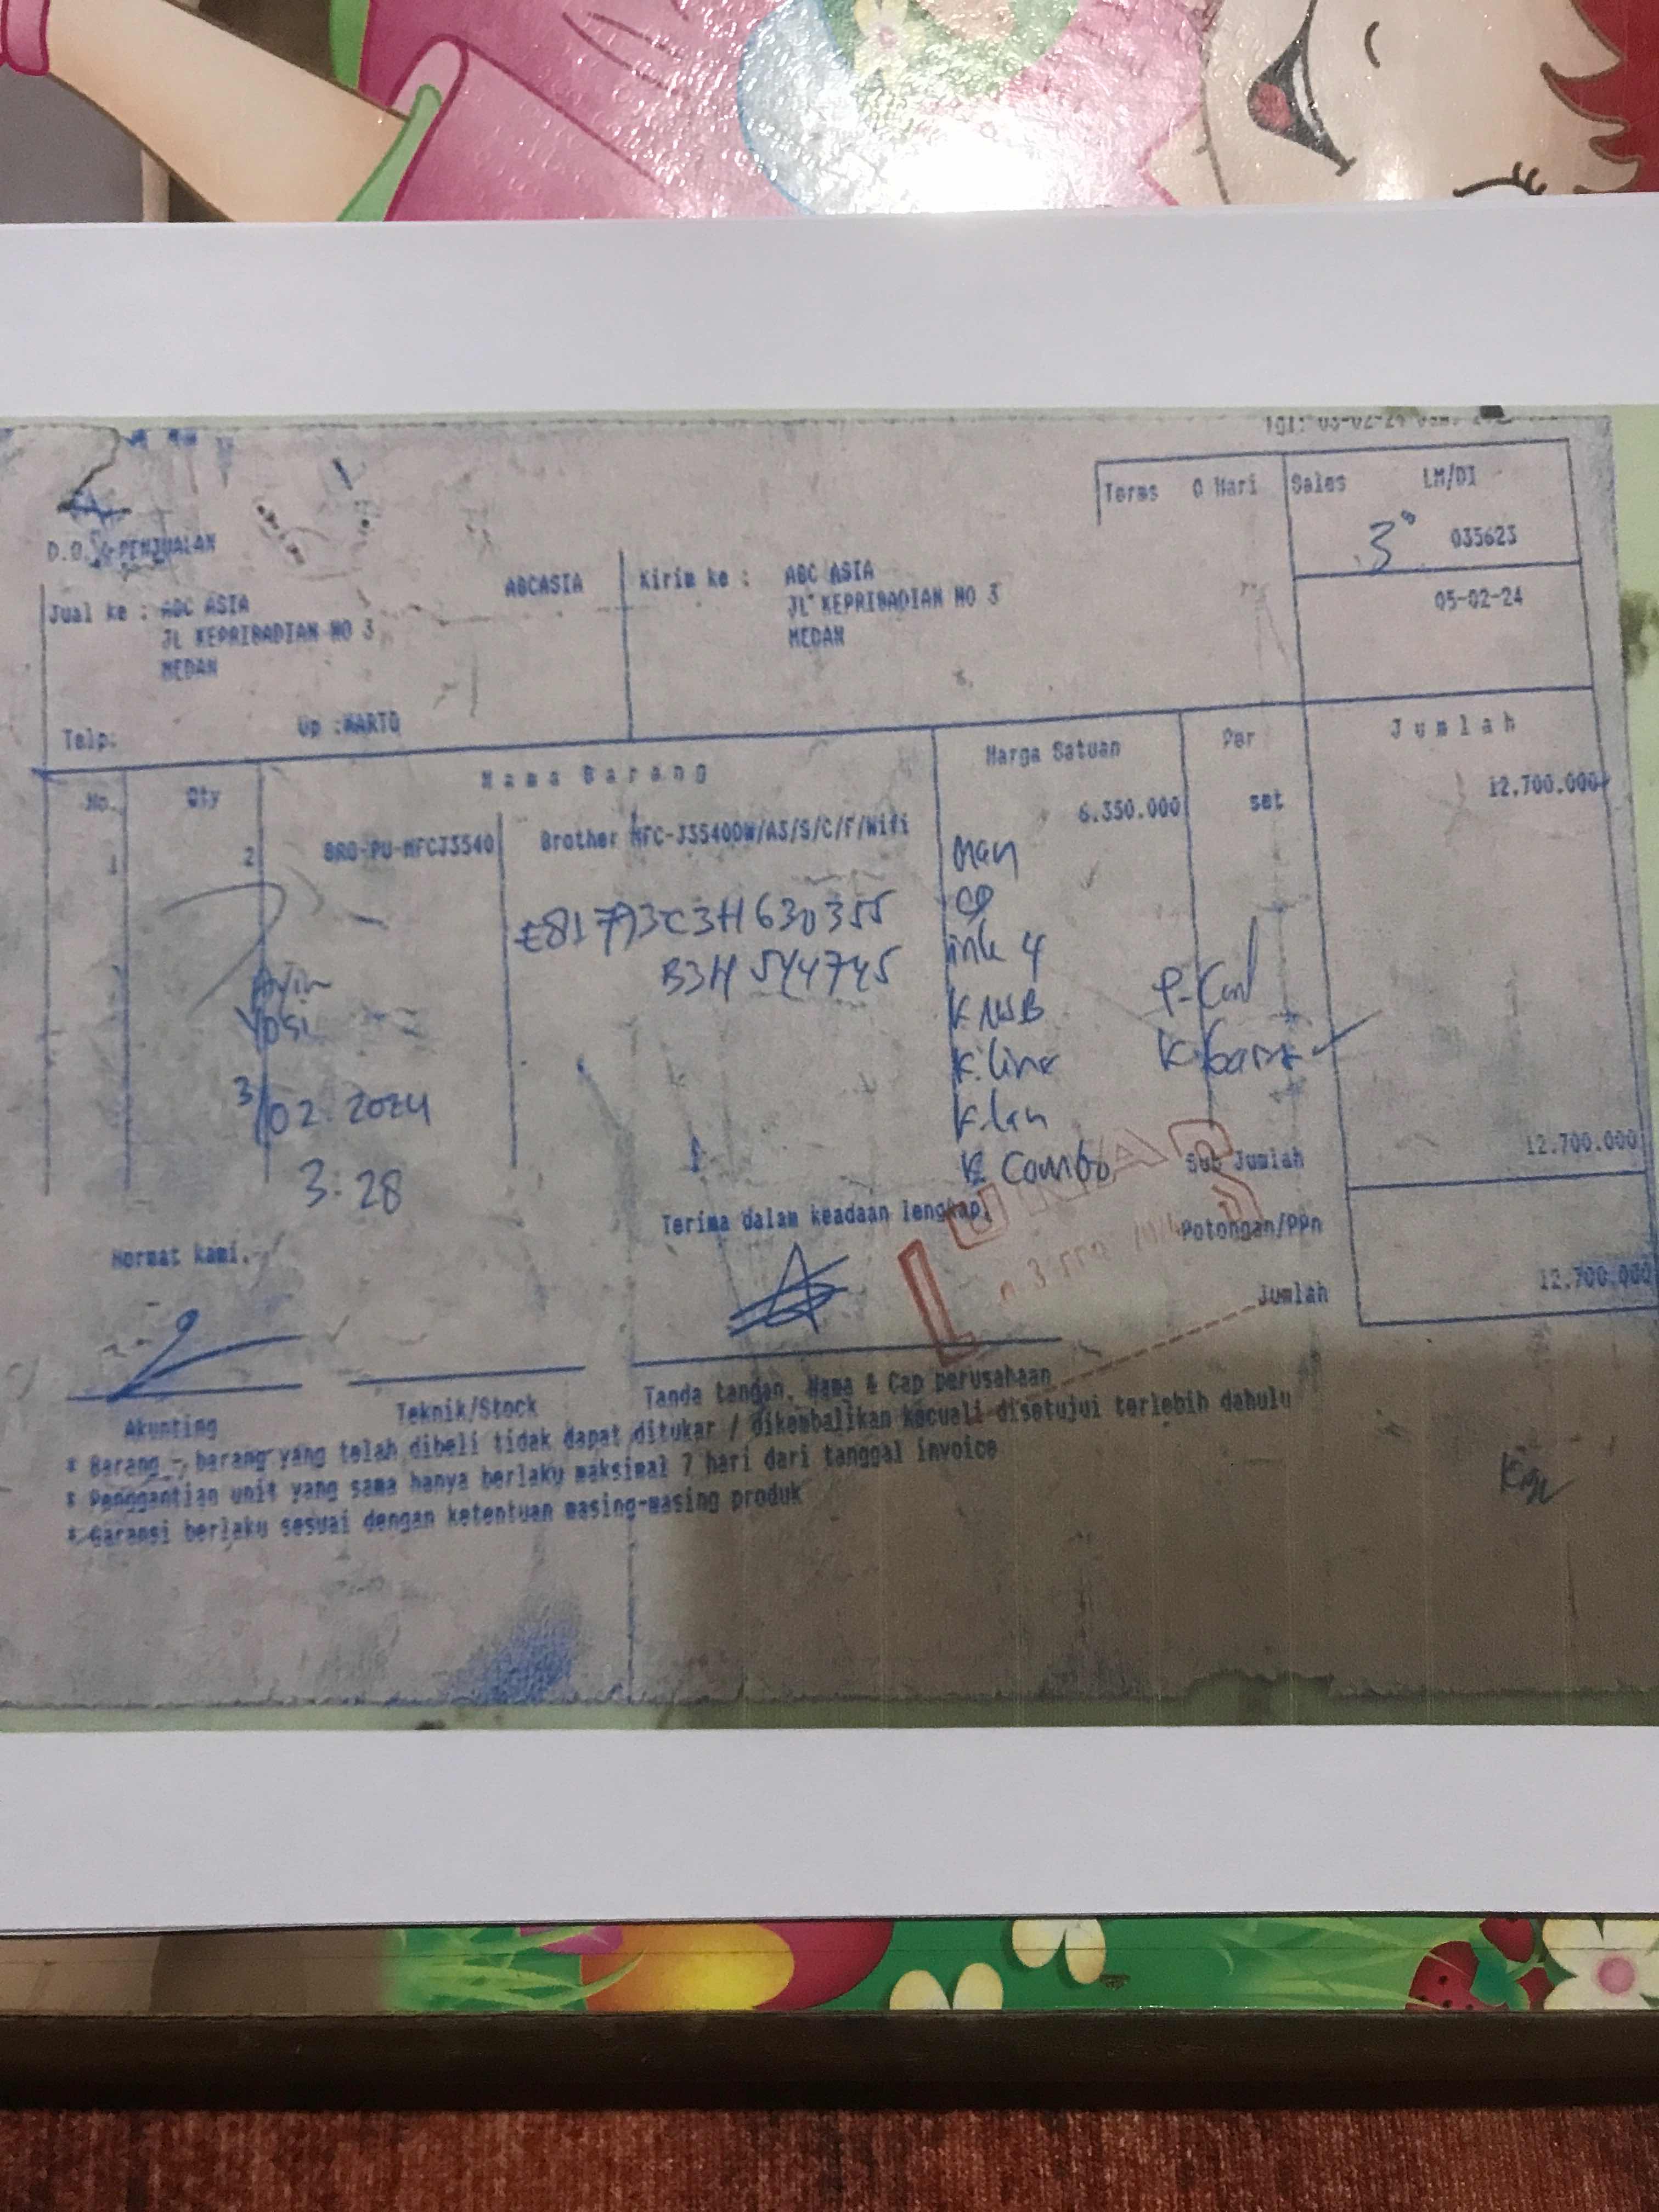 Terms 0 Hari Sales LM/DI
3 035623
D.O. PENJUALAN
05-02-24
Jual ke : ABC ASIA ABCASIA Kirim ke : ABC ASIA
JL KEPRIBADIAN NO 3 JL KEPRIBADIAN NO 3
MEDAN MEDAN
Telp. Up :WARTO
No. Qty Nama Barang Harga Satuan Per Jumlah
1 2 BRO-PU-MFCJ3540 Brother MFC-J3540DW/A3/S/C/F/Wifi 6.350.000 set 12.700.000
E81793C3H630355
B3H544745
CD
ink 4
K USB P-Cord
K.line
K.lan
K Combo
Yosi
3/02.2024
3:28
Sub Jumlah 12.700.000
Terima dalam keadaan lengkap,
LUNAS
Potongan/PPn
Hormat kami,
Jumlah 12.700.000
Akunting Teknik/Stock Tanda tangan, Nama & Cap perusahaan
* Barang - barang yang telah dibeli tidak dapat ditukar / dikembalikan kecuali disetujui terlebih dahulu
* Penggantian unit yang sama hanya berlaku maksimal 7 hari dari tanggal invoice
* Garansi berlaku sesuai dengan ketentuan masing-masing produk